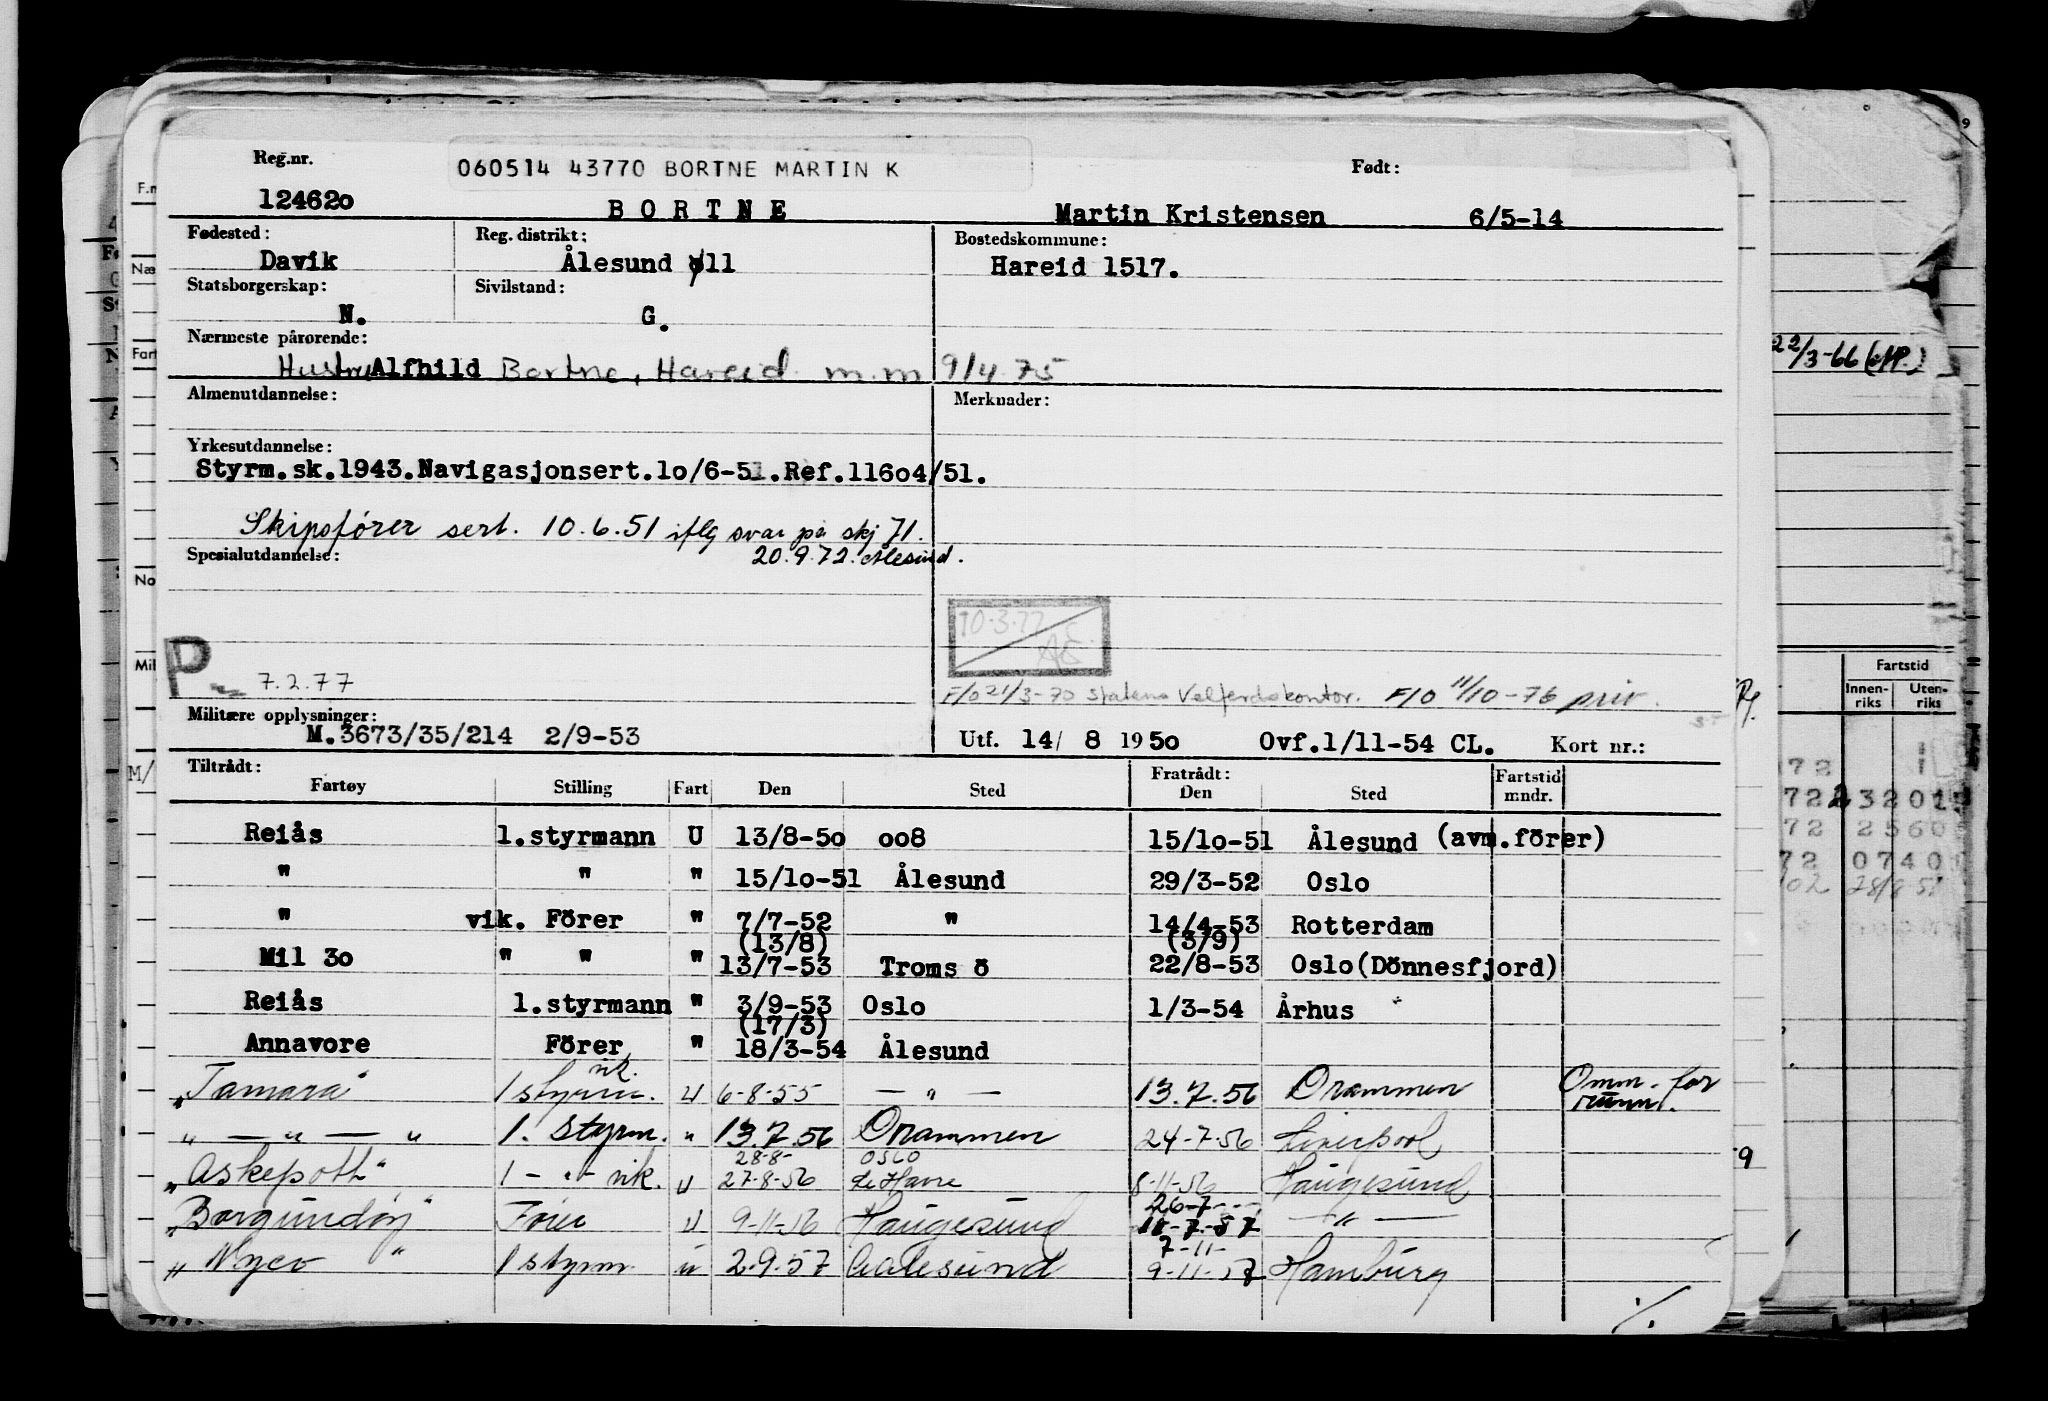 Reg.nr. 060514 43770 BORTNE MARTIN K Født:
124620 BORTNE Martin Kristensen 6/5-14
Fødested: Reg. distrikt: Bostedskommune:
Davik Ålesund 11 Hareid 1517.
Statsborgerskap: Sivilstand:
N. G.
Nærmeste pårørende:
Hustru Alfhild Bortne, Hareid m.m 9/4 75
22/3-66
Almenutdannelse: Merknader:
Yrkesutdannelse:
Styrm.sk.1943.Navigasjonsert.lo/6-51.Ref.116o4/51.
Skipsfører sert. 10.6.51 iflg svar på skj 71.
Spesialutdannelse: 20.9.72. Ålesund.
10.3.77
P 7.2.77
F/o 21/3-70 Statens Velferdskontor. F/O 11/10-76 priv.
Militære opplysninger:
M.3673/35/214 2/9-53 Utf. 14/ 8 1950 Ovf.1/11-54 CL. Kort nr.:
Tiltrådt: Fratrådt: Fartstid
Fartøy Stilling Fart Den Sted Den Sted mndr.
Reiås 1.styrmann U 13/8-5o oo8 15/lo-51 Ålesund (avm.förer)
" " " 15/lo-51 Ålesund 29/3-52 Oslo
" vik. Förer " 7/7-52 " 14/4-53 Rotterdam
(13/8) (3/9)
Mil 3o " " " 13/7-53 Troms ö 22/8-53 Oslo(Dönnesfjord)
Reiås 1.styrmann " 3/9-53 Oslo 1/3-54 Århus
(17/3)
Annavore Förer " 18/3-54 Ålesund
vik.
"Tamara" 1 styrm. U 6-8-55 — " — 13.7.56 Drammen Omm. for
rumm.
" — " — " 1. Styrm. " 13.7.56 Drammen 24-7-56 Liverpool
28-8- OSLO
"Askepott" 1 - " - vik. U 27-8-56 Le Havre 8-11-56 Haugesund
26-7-
"Borgundøy" Fører U 9-11-56 Haugesund 11-7-57 — " —
7-11-
"Nyco" 1 styrm. U 2.9.57 Aalesund 9-11-57 Hamburg
Fartstid
Innen-
riks
Uten-
riks